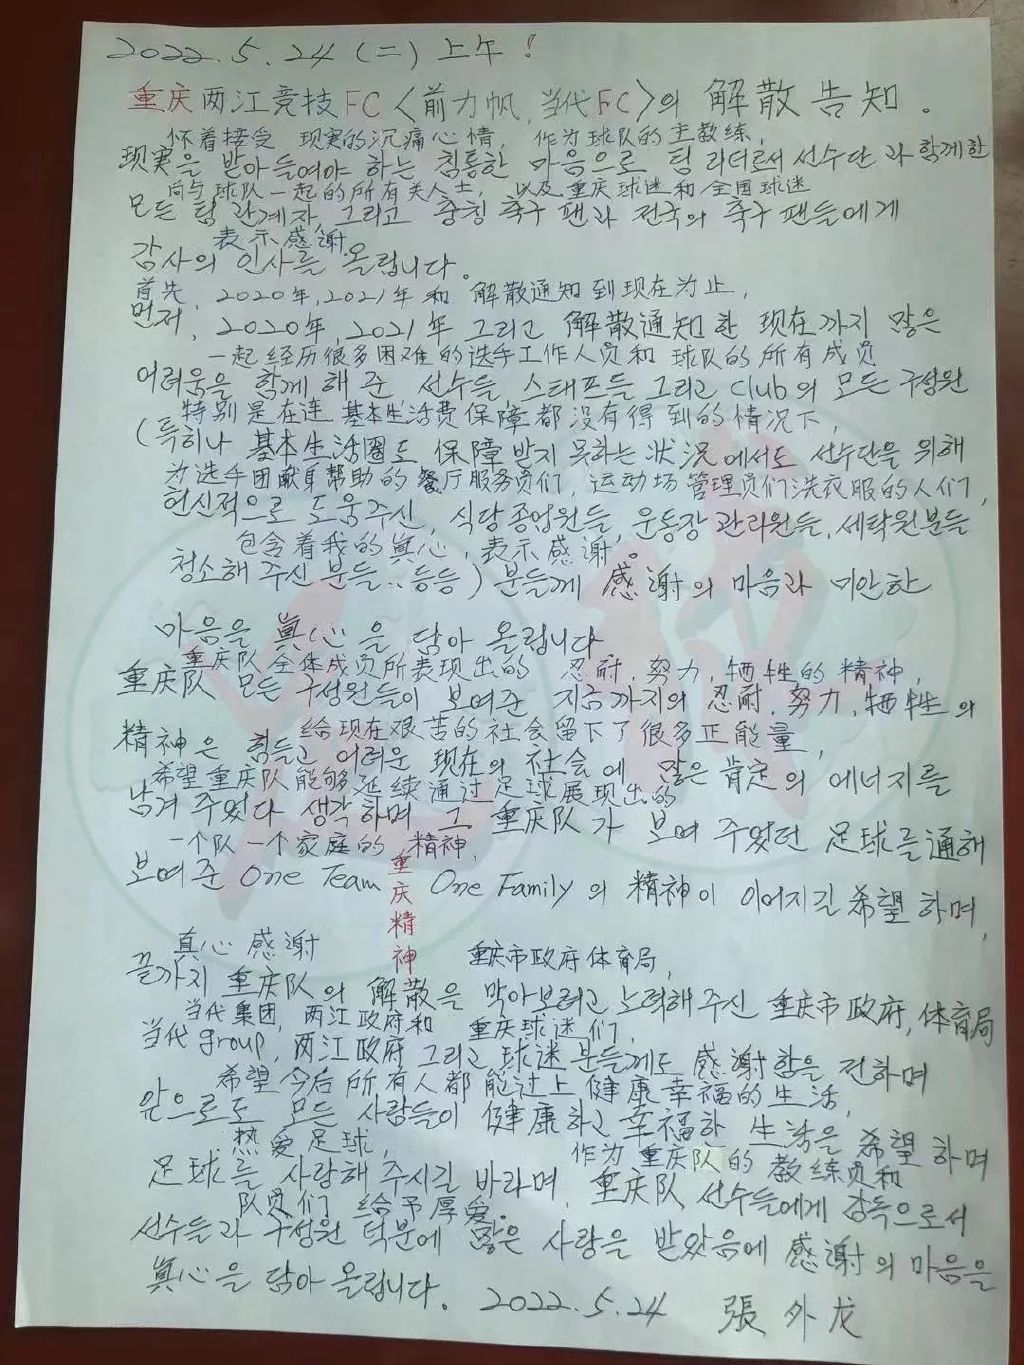 2022.5.24(二)上午!
重庆两江竞技FC〈前力帆,当代FC〉의 解散告知。
怀着接受 现实的沉痛心情, 作为球队的主教练,
现实을 받아들여야 하는 침통한 마음으로 팀 리더로서 선수단과 함께한
向与球队一起的所有关人士, 以及重庆球迷和全国球迷
모든 팀 관계자, 그리고 충칭 축구 팬과 전국의 축구 팬들에게
表示感谢.
감사의 인사를 올립니다。
首先, 2020年,2021年和 解散通知到现在为止,
먼저, 2020年,2021年 그리고 解散通知한 现在까지 많은
一起经历很多困难的选手工作人员和 球队的所有成员
어려움을 함께 해 준 선수들, 스태프들 그리고 Club의 모든 구성원
特别是在连 基本生活费保障都没有得到的情况下,
(특히나 基本生活圈도 保障받지 못하는 状况에서도 선수단을 위해
为选手团献身帮助的餐厅服务员们, 运动场管理员们洗衣服的人们,
헌신적으로 도움주신, 식당종업원들, 운동장관리원들, 세탁원분들
包含着我的真心, 表示感谢。
청소해 주신 분들..등등) 분들께 感谢의 마음과 미안한
마음을 真心을 담아 올립니다
重庆队全体成员所表现出的 忍耐, 努力, 牺牲的精神,
重庆队 모든 구성원들이 보여준 지금까지의 忍耐, 努力, 牺牲의
给现在艰苦的社会留下了很多正能量,
精神은 힘들고 어려운 现在의 社会에 많은 肯定의 에너지를
希望重庆队能够延续通过足球展现出的
남겨 주었다 생각하며 그 重庆队가 보여 주었던 足球를 通해
一个队一个家庭的 精神,
보여준 One Team One Family의 精神이 이어지길 希望하며,
重庆精神
真心感谢 重庆市政府体育局,
끝까지 重庆队의 解散을 막아보려고 노력해주신 重庆市政府, 体育局
当代集团, 两江政府和 重庆球迷们,
当代group, 两江政府 그리고 球迷분들께도 感谢함을 전하며
希望今后所有人都能过上健康幸福的生活,
앞으로도 모든 사람들이 健康하고 幸福한 生活을 希望하며
热爱足球, 作为重庆队的教练员和
足球를 사랑해 주시길 바라며, 重庆队 선수들에게 감독으로서
队员们 给予厚爱。
선수들과 구성원 덕분에 많은 사랑을 받았음에 感谢의 마음을
真心을 담아 올립니다。 2022.5.24 張外龙